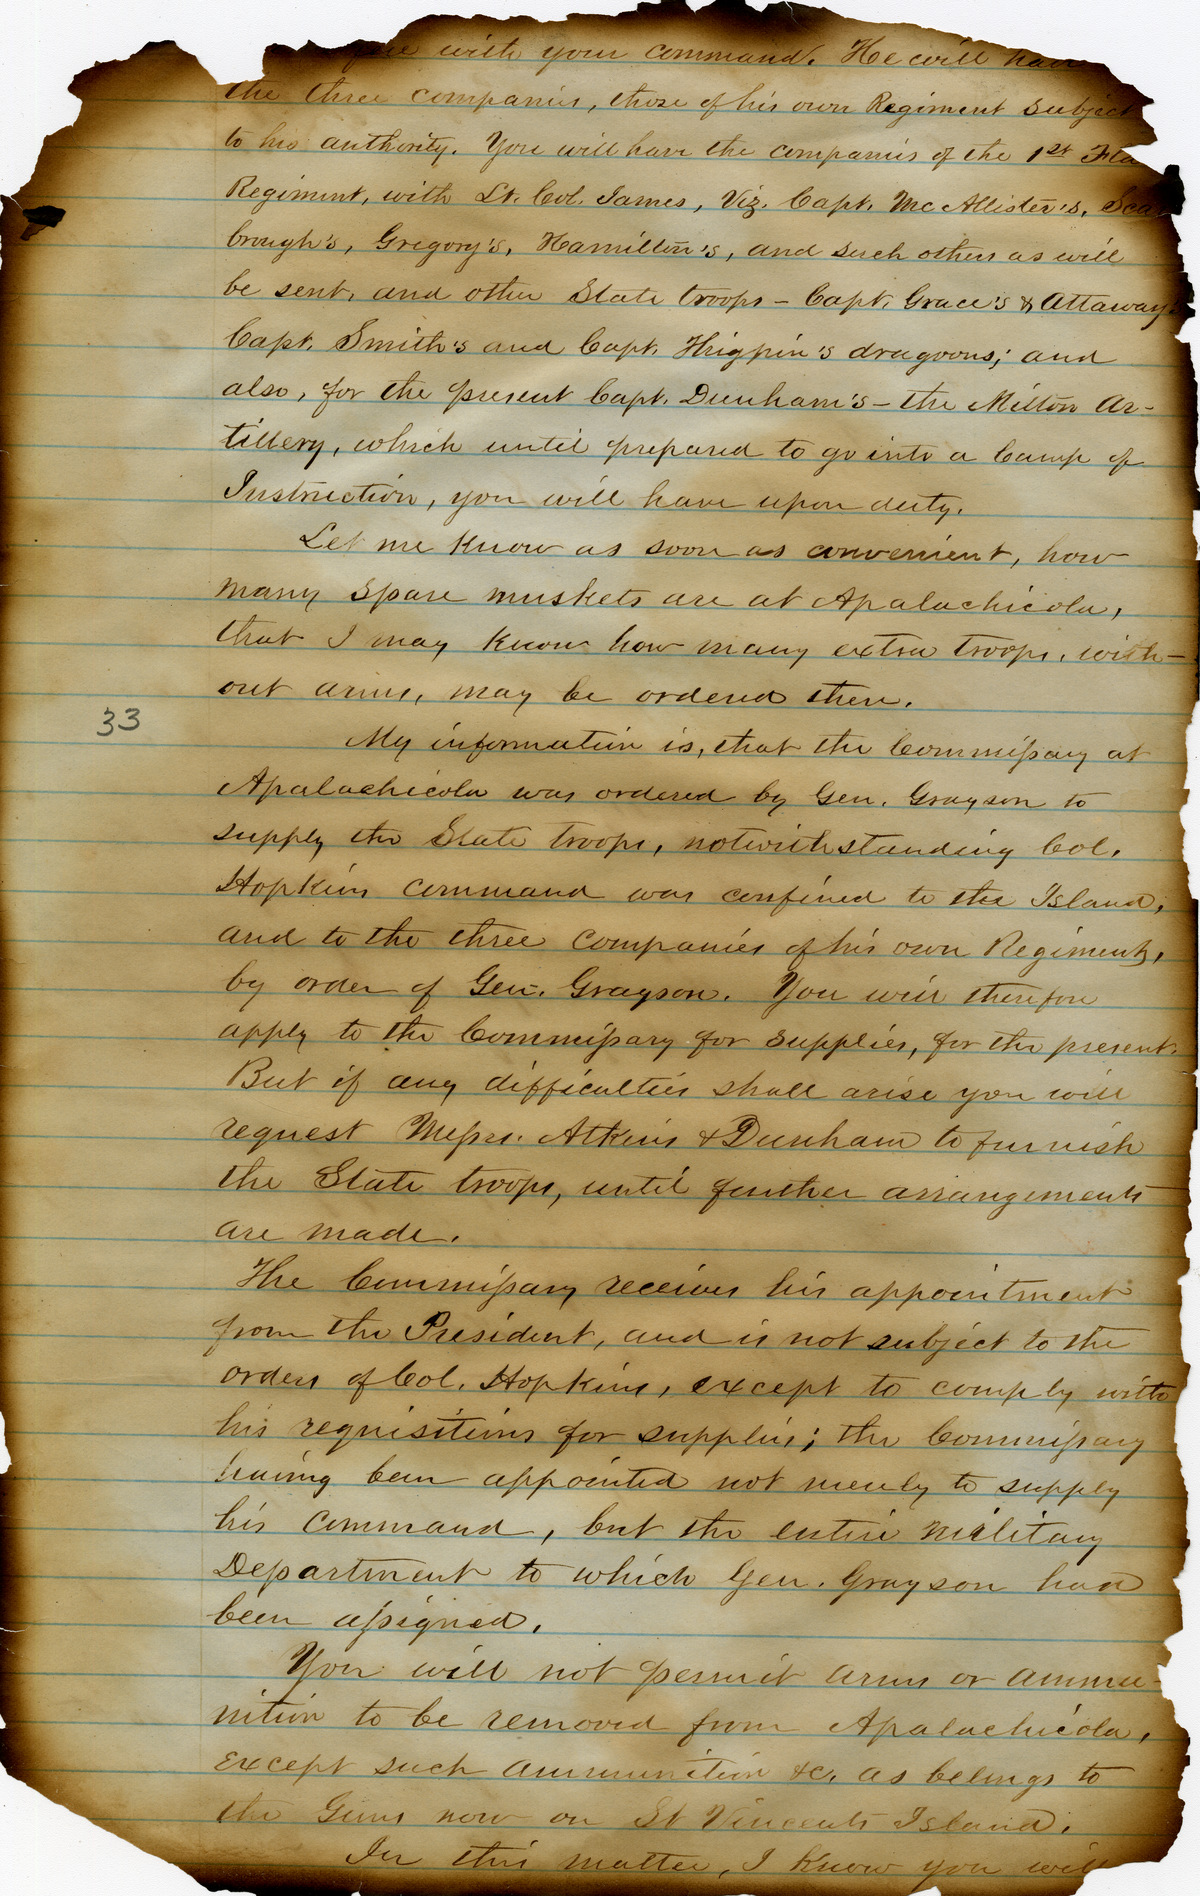 with your command. He will have
the three companies, those of his own Regiment subject
to his authority. You will have the companies of the 1st Fla
Regiment, with Lt. Col. James, Viz. Capt. McAllister's, Sca
brough's, Gregory's, Hamilton's, and such others as will
be sent, and other State troops – Capt. Grace's & Attaway's
Capt. Smith's and Capt. Thigpin's dragoons; and
also, for the present Capt. Dunham's – the Milton Ar-
tillery, which until prepared to go into a Camp of
Instruction, you will have upon duty.
Let me know as soon as convenient, how
many spare muskets are at Apalachicola,
that I may know how many extra troops, with-
out arms, may be ordered there.
33
My information is, that the Commissary at
Apalachicola was ordered by Gen. Grayson to
supply the State troops, notwithstanding Col.
Hopkins command was confined to the Island,
and to the three companies of his own Regiment,
by order of Gen. Grayson. You will therefore
apply to the Commissary for supplies, for the present.
But if any difficulties shall arise you will
request Messrs. Atkins & Dunham to furnish
the State troops, until further arrangements
are made.
The Commissary receives his appointment
from the President, and is not subject to the
orders of Col. Hopkins, except to comply with
his requisitions for supplies; the Commissary
having been appointed not merely to supply
his command, but the entire military
Department to which Gen. Grayson had
been assigned.
You will not permit arms or ammu-
nition to be removed from Apalachicola,
except such ammunition &c. as belongs to
the Guns now on St Vincents Island.
In this matter, I know you will